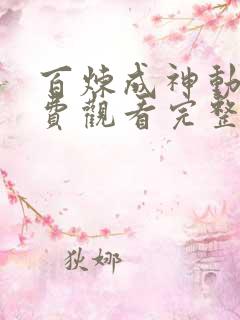 百炼成神動
費觀看完整
狄娜